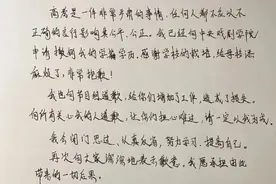 高考是一件非常严肃的事情，任何人都不应以不
正确的言行影响其公平、公正。我已经向中央戏剧学院
申请撤销我的学籍学历。感谢学校的栽培，给母校添
麻烦了，非常抱歉！
我也向节目组道歉，给你们增加了工作，造成了损失。
向所有关心我的人道歉，让你们担心难过，请一定以我为戒。
我会闭门思过、认真反省，努力学习，提高自己。
再次向大家深深地表示歉意。我愿承担由此
带来的一切后果。